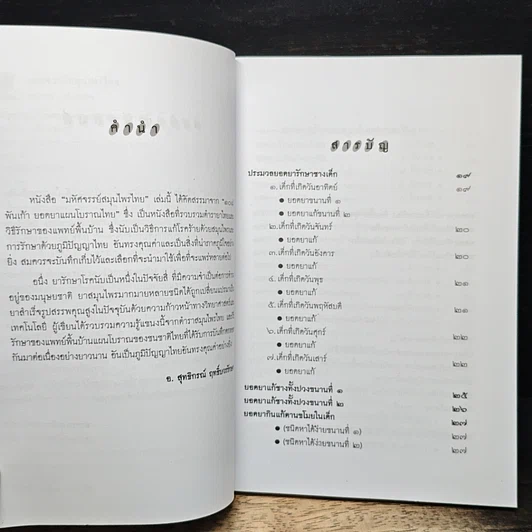 คำนำ
หนังสือ "มหัศจรรย์สมุนไพรไทย" เล่มนี้ ได้คัดสรรมาจาก "๑๐๘
พันเก้า ยอดยาแผนโบราณไทย" ซึ่ง เป็นหนังสือที่รวบรวมตำรายาไทยและ
วิธีรักษาของแพทย์พื้นบ้าน ซึ่งนับเป็นวิธีการแก้โรคร้ายด้วยสมุนไพร
การรักษาด้วยภูมิปัญญาไทย อันทรงคุณค่าและเป็นสิ่งที่น่าภาคภูมิใจอย่าง
ยิ่ง สมควรจะบันทึกเก็บไว้และเลือกที่จะนำมาใช้เพื่อที่จะแพร่หลายต่อไป
อนึ่ง ยารักษาโรคนับเป็นหนึ่งในปัจจัยสี่ ที่มีความจำเป็นต่อการดำรง
อยู่ของมนุษยชาติ ยาสมุนไพรมากมายหลายชนิดได้ถูกเปลี่ยนแปรมาเป็น
ยาสำเร็จรูปสรรพคุณสูงในปัจจุบันด้วยความก้าวหน้าทางวิทยาศาสตร์และ
เทคโนโลยี ผู้เขียนได้รวบรวมความรู้แขนงนี้จากตำราสมุนไพรไทย
รักษาของแพทย์พื้นบ้านแผนโบราณของชนชาติไทยที่ได้รับการบันทึก
กันมาต่อเนื่องอย่างยาวนาน อันเป็นภูมิปัญญาไทยอันทรงคุณค่าอย่างยิ่ง
อ. สุทธิกรณ์
สารบัญ
ประมวลยอดยารักษาซางเด็ก ๑๙
๑. เด็กที่เกิดวันอาทิตย์ ๑๙
● ยอดยาขนานที่ ๑
● ยอดยาแก้ขนานที่ ๒
๒. เด็กที่เกิดวันจันทร์ ๒๐
● ยอดยาแก้
๓. เด็กที่เกิดวันอังคาร ๒๐
● ยอดยาแก้
๔. เด็กที่เกิดวันพุธ ๒๑
● ยอดยาแก้
๕. เด็กที่เกิดวันพฤหัสบดี ๒๑
● ยอดยาแก้
๖. เด็กที่เกิดวันศุกร์ ๒๒
● ยอดยาแก้
๗. เด็กที่เกิดวันเสาร์ ๒๒
● ยอดยาแก้
ยอดยาแก้ซางทั้งปวงขนานที่ ๑ ๒๕
ยอดยาแก้ซางทั้งปวงขนานที่ ๒ ๒๖
ยอดยากินแก้ตานขโมยในเด็ก ๒๗
● (ชนิดหาได้ง่ายขนานที่ ๑) ๒๗
● (ชนิดหาได้ง่ายขนานที่ ๒) ๒๗